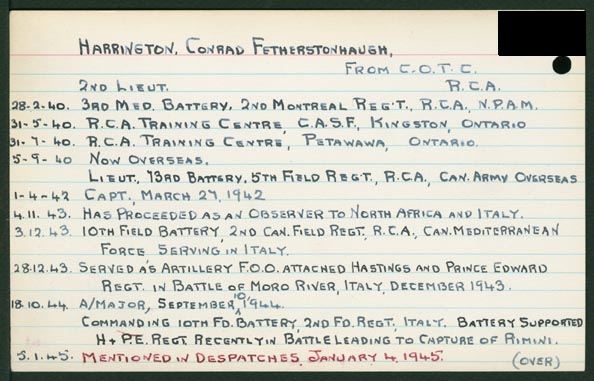 HARRINGTON, CONRAD FETHERSTONHAUGH,
FROM C.O.T.C.
2ND LIEUT. R.C.A.
28-2-40. 3RD MED. BATTERY, 2ND MONTREAL REG'T., R.C.A., N.P.A.M.
31-5-40. R.C.A. TRAINING CENTRE, C.A.S.F., KINGSTON, ONTARIO
31-7-40. R.C.A. TRAINING CENTRE, PETAWAWA, ONTARIO.
5-9-40 NOW OVERSEAS.
LIEUT., 73RD BATTERY, 5TH FIELD REGT., R.C.A., CAN. ARMY OVERSEAS
1-4-42 CAPT., MARCH 27, 1942
4.11.43. HAS PROCEEDED AS AN OBSERVER TO NORTH AFRICA AND ITALY.
3.12.43. 10TH FIELD BATTERY, 2ND CAN. FIELD REGT., R.C.A., CAN. MEDITERRANEAN
FORCE SERVING IN ITALY.
28.12.43. SERVED AS ARTILLERY F.O.O. ATTACHED HASTINGS AND PRINCE EDWARD
REGT. IN BATTLE OF MORO RIVER, ITALY, DECEMBER 1943.
18.10.44. A/MAJOR, SEPTEMBER 10, 1944.
COMMANDING 10TH FD. BATTERY, 2ND FD. REGT., ITALY. BATTERY SUPPORTED
H + P.E. REGT RECENTLY IN BATTLE LEADING TO CAPTURE OF RIMINI.
5.1.45. MENTIONED IN DESPATCHES, JANUARY 4, 1945.
(OVER)